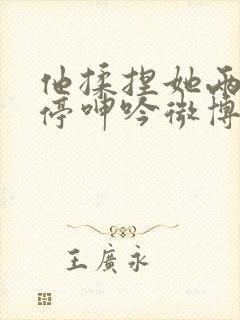 他揉捏她两
停呻吟微博
王廣永